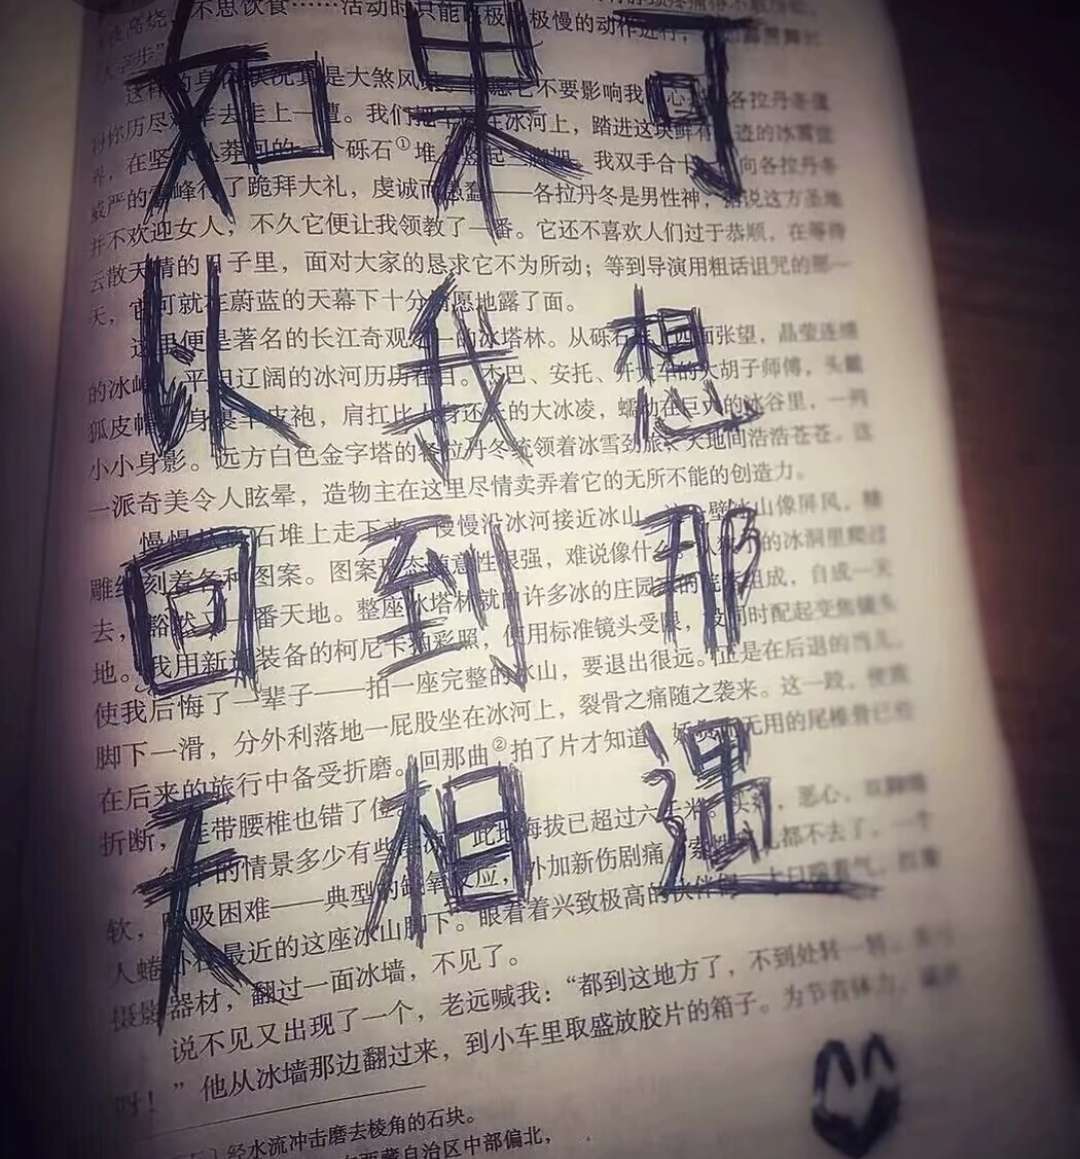 如果可
以我想
回到那
天相遇
不思饮食……活动时只能以极慢的动作进行,
这样的身体状况真是大煞风景,不要影响我心各拉丹冬值
得你历尽去走上一遭。我们把在冰河上,踏进这块鲜有迹的冰雪世
界,在坚冰莽间的一个砾石①堆上竖起。我双手合十,向各拉丹冬
威严的雪峰行了跪拜大礼,虔诚而愚蠢——各拉丹冬是男性神,据说这方圣地
并不欢迎女人,不久它便让我领教了一番。它还不喜欢人们过于恭顺,在等待
云散天晴的日子里,面对大家的恳求它不为所动;等到导演用粗话诅咒的那一
天,它可就在蔚蓝的天幕下十分情愿地露了面。
这里便是著名的长江奇观之一的冰塔林。从砾石堆上四面张望,晶莹连绵
的冰峰、平坦辽阔的冰河历历在目。杰巴、安托、开大车的大胡子师傅,头戴
狐皮帽,身裹羊皮袍,肩扛比身还长的大冰凌,蠕动在巨大的冰谷里,一列
小小身影。远方白色金字塔的各拉丹冬统领着冰雪劲旅,天地间浩浩苍苍。这
一派奇美令人眩晕,造物主在这里尽情卖弄着它的无所不能的创造力。
慢慢从石堆上走下来,慢慢沿冰河接近冰山。这一壁冰山像屏风,精
雕细刻着各种图案。图案形态随意性很强,难说像什么。的冰洞里爬过
去,豁然又一番天地。整座冰塔林就由许多冰的庄园组成,自成一天
地。我用新装备的柯尼卡拍彩照,使用标准镜头受限,没同时配起变焦镜头
使我后悔了一辈子——拍一座完整的冰山,要退出很远。正是在后退的当儿,
脚下一滑,分外利落地一屁股坐在冰河上,裂骨之痛随之袭来。这一跤,使我
在后来的旅行中备受折磨。回那曲②拍了片才知道,无用的尾椎骨已经
折断,连带腰椎也错了位。
的情景多少有些此地海拔已超过六千米。头痛、恶心、双脚绵
软,呼吸困难——典型的缺氧反应,外加新伤剧痛,索性儿都不去了,一个
人蜷卧在最近的这座冰山脚下。眼看着兴致极高的伙伴们,大口喘着气,扛着
摄影器材,翻过一面冰墙,不见了。
说不见又出现了一个,老远喊我:“都到这地方了,不到处转一转,
呀!”他从冰墙那边翻过来,到小车里取盛放胶片的箱子。为节省体力,
经水流冲击磨去棱角的石块。
西藏自治区中部偏北,